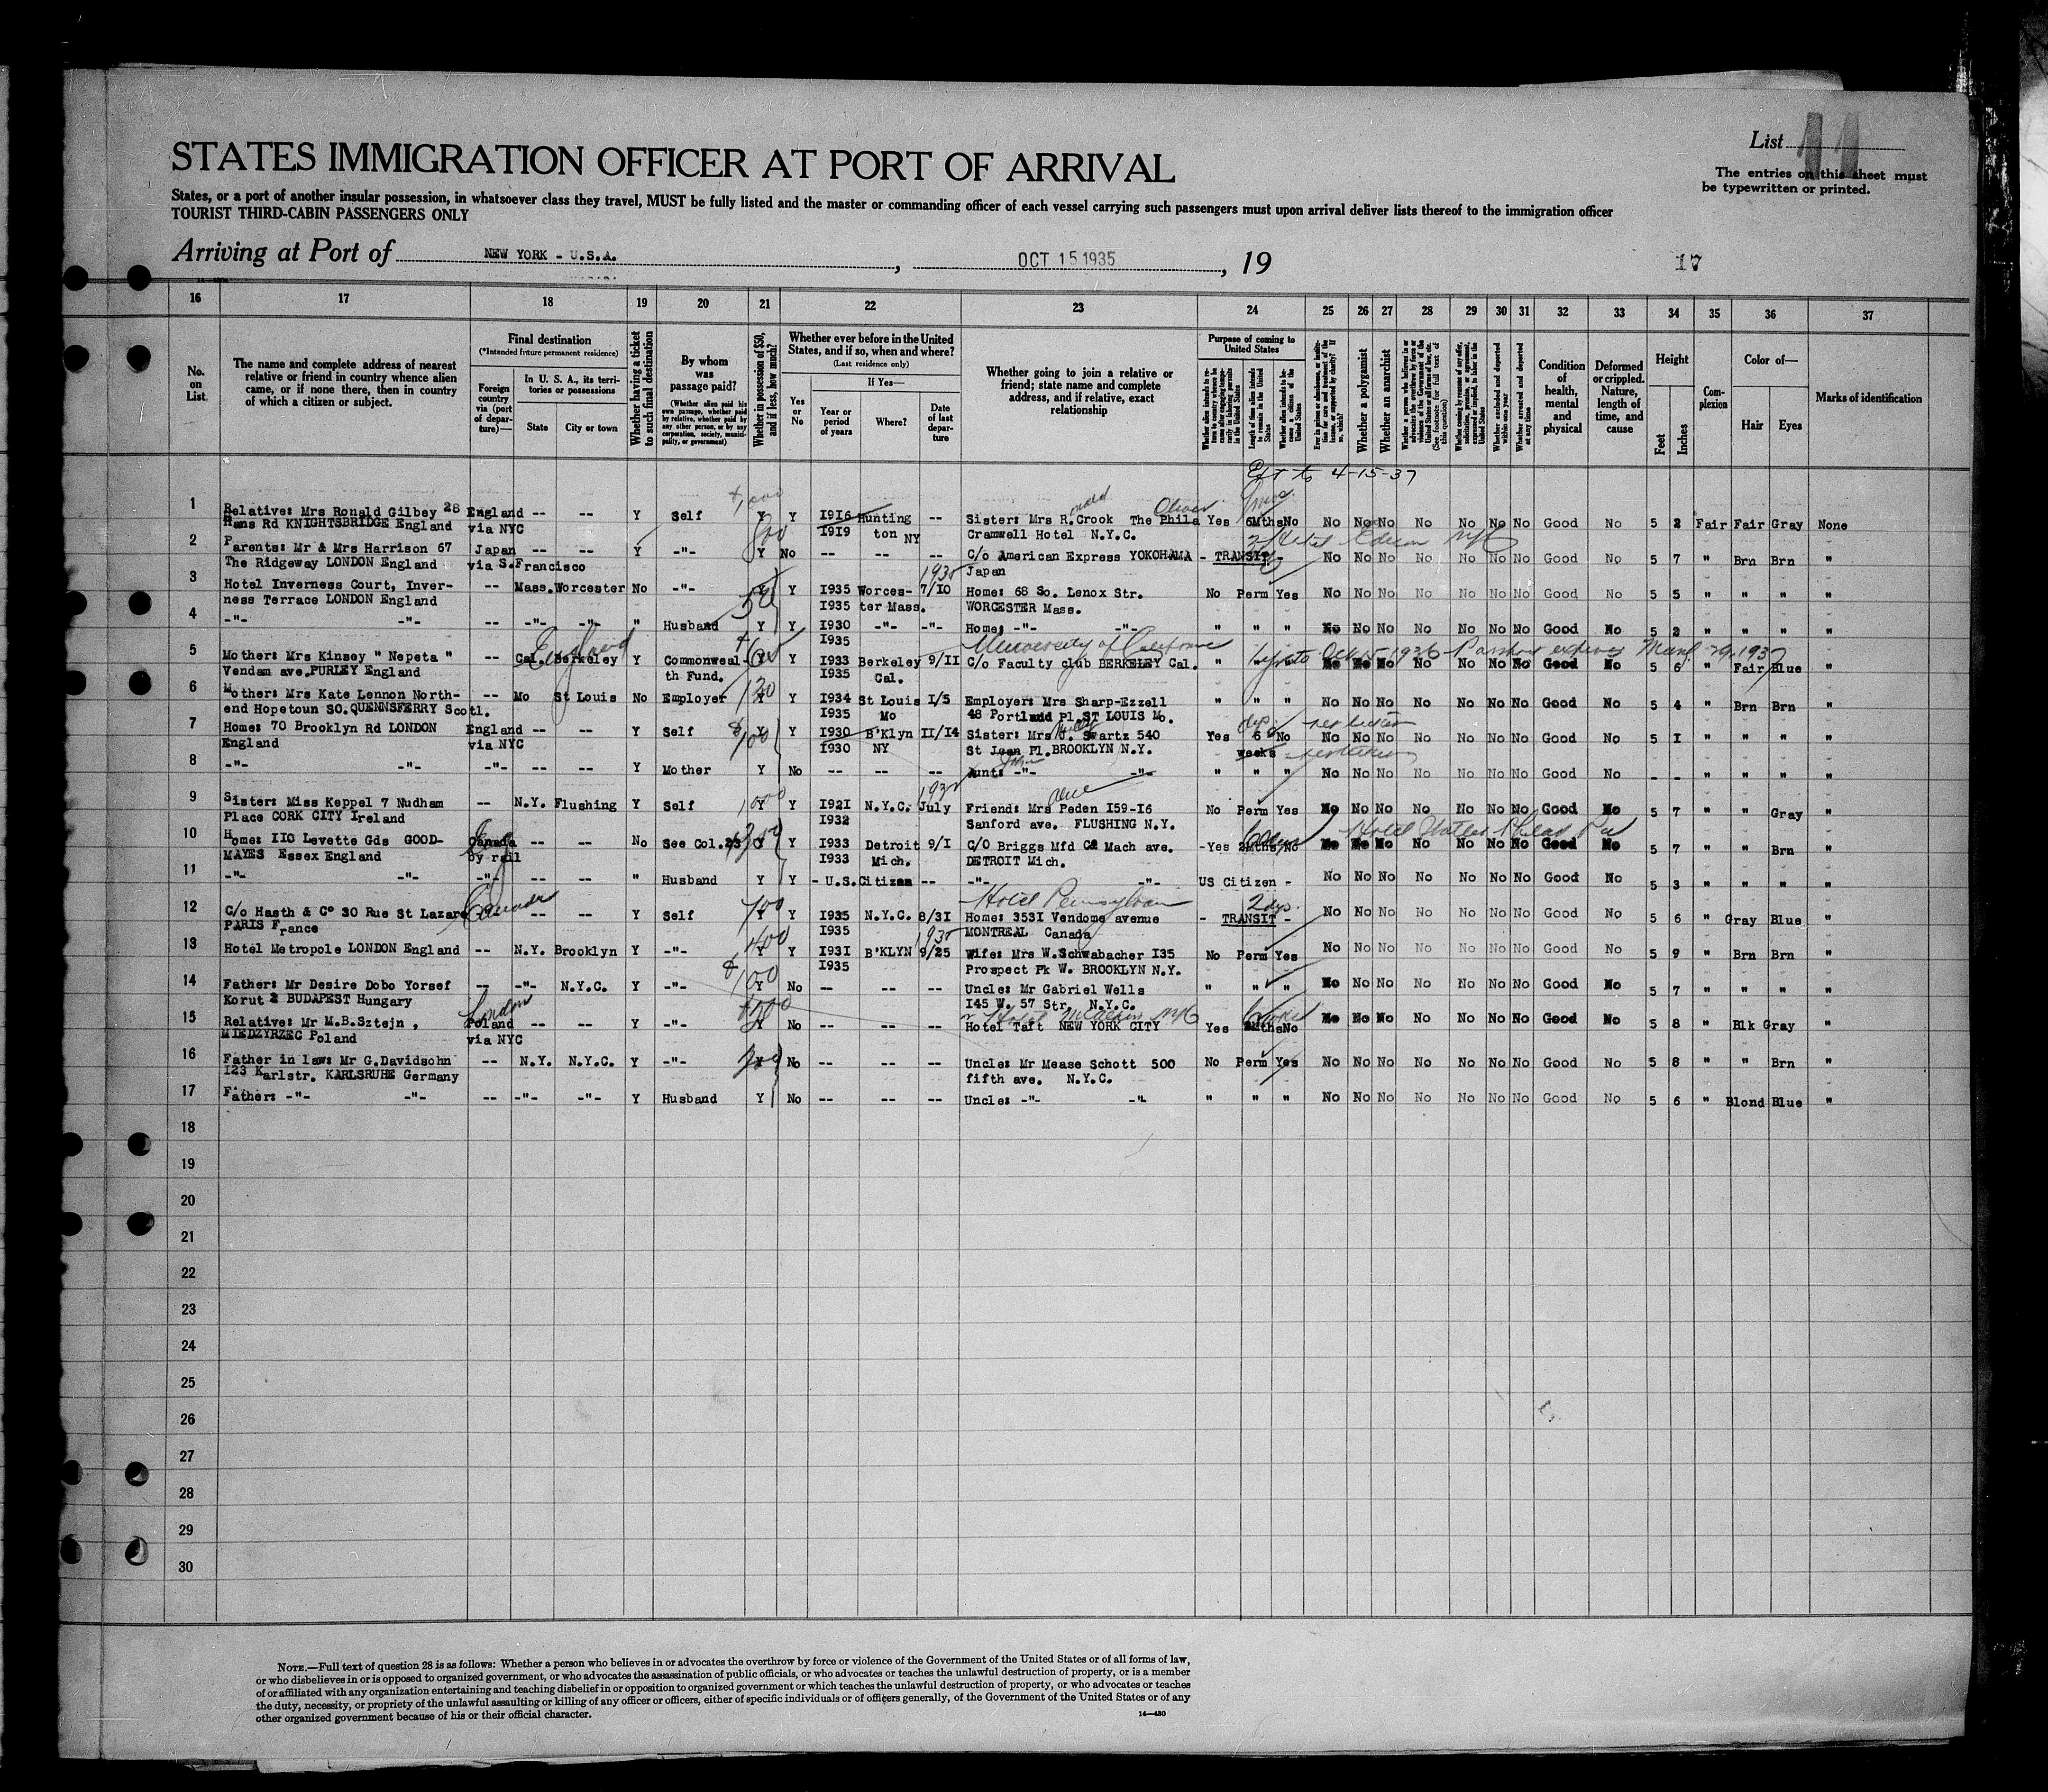 List 11
STATES IMMIGRATION OFFICER AT PORT OF ARRIVAL
The entries on this sheet must
be typewritten or printed.
States, or a port of another insular possession, in whatsoever class they travel, MUST be fully listed and the master or commanding officer of each vessel carrying such passengers must upon arrival deliver lists thereof to the immigration officer
TOURIST THIRD-CABIN PASSENGERS ONLY
Arriving at Port of NEW YORK - U.S.A. , OCT 15 1935 , 19
17
16 17 18 19 20 21 22 23 24 25 26 27 28 29 30 31 32 33 34 35 36 37
No. on List
The name and complete address of nearest relative or friend in country whence alien came, or if none there, then in country of which a citizen or subject.
Final destination
(*Intended future permanent residence)
Foreign country via (port of departure)—
In U. S. A., its territories or possessions
State City or town
Whether having a ticket to such final destination
By whom was passage paid?
(Whether alien paid his own passage, whether paid by relative, whether paid by any other person, or by any corporation, society, municipality, or government)
Whether in possession of $50, and if less, how much?
Whether ever before in the United States, and if so, when and where?
(Last residence only)
If Yes—
Yes or No
Year or period of years
Where?
Date of last departure
Whether going to join a relative or friend; state name and complete address, and if relative, exact relationship
Purpose of coming to United States
Whether a polygamist
Whether an anarchist
Whether excluded and deported within one year
Whether arrested and deported at any time
Condition of health, mental and physical
Deformed or crippled. Nature, length of time, and cause
Height
Feet Inches
Complexion
Color of—
Hair Eyes
Marks of identification
Ext to 4-15-37
1 Relative: Mrs Ronald Gilbey 28 England -- -- Y Self Y Y 1916 Hunting -- Sister: Mrs R. Crook The Phila Yes 6Mths No No No No No No No No Good No 5 2 Fair Fair Gray None
Hans Rd KNIGHTSBRIDGE England via NYC 1919 ton NY Cramwell Hotel N.Y.C.
2 Parents: Mr & Mrs Harrison 67 Japan -- -- Y -"- Y No -- -- -- C/o American Express YOKOHAMA - TRANSIT - No No No No No No No Good No 5 7 " Brn Brn "
The Ridgeway LONDON England via S.Francisco Japan
3 Hotel Inverness Court, Inver- -- Mass. Worcester No -"- Y Y 1935 Worces- 7/10 Home: 68 So. Lenox Str. No Perm Yes No No No No No No No Good No 5 5 " " " "
ness Terrace LONDON England 1935 ter Mass. WORCESTER Mass.
4 -"- -"- -- -"- -"- " Husband Y Y 1930 -"- -"- Home: -"- -"- " " " No No No No No No No Good No 5 2 " " " "
1935
England University of California
5 Mother: Mrs Kinsey " Nepeta " -- Cal. Berkeley Y Commonweal- Y 1933 Berkeley 9/11 C/o Faculty club BERKELEY Cal. " No No No No No No No Good No 5 6 " Fair Blue "
Vendam ave. PURLEY England th Fund. 1935 Cal.
6 Mother: Mrs Kate Lennon North- -- Mo St Louis No Employer Y Y 1934 St Louis 1/5 Employer: Mrs Sharp-Ezzell " " " No No No No No No No Good No 5 4 " Brn Brn "
end Hopetoun SO.QUENNSFERRY Scotl. 1935 Mo 48 Portland Pl. ST LOUIS Mo.
7 Home: 70 Brooklyn Rd LONDON England -- -- Y Self Y Y 1930 B'Klyn 11/14 Sister: Mrs H. Swartz 540 Yes 6 No No No No No No No No Good No 5 1 " " " "
England via NYC 1930 NY St Jean Pl. BROOKLYN N.Y. weeks
8 -"- -"- -"- -- -- Y Mother Y No -- -- -- Aunt: -"- -"- " " " No No No No No No No Good No - - " " " "
9 Sister: Miss Keppel 7 Nudham -- N.Y. Flushing Y Self Y Y 1921 N.Y.C. July Friend: Mrs Peden 159-16 No Perm Yes No No No No No No No Good No 5 7 " " Gray "
Place CORK CITY Ireland 1932 Sanford ave. FLUSHING N.Y.
10 Home: 110 Levette Gds GOOD- Canada -- -- No See Col.23 Y Y 1933 Detroit 9/1 C/O Briggs Mfd C° Mach ave. -Yes 2Mths No No No No No No No No Good No 5 7 " " Brn "
MAYES Essex England By rail 1933 Mich. DETROIT Mich.
11 -"- -"- -"- -- -- " Husband Y Y - U.S. Citizen -- -"- -"- US Citizen - No No No No No No No Good No 5 3 " " " "
Canada 700 Hotel Pennsylvania 2 dys.
12 C/o Hasth & C° 30 Rue St Lazare -- -- Y Self Y Y 1935 N.Y.C. 8/31 Home: 3531 Vendome avenue - TRANSIT - No No No No No No No Good No 5 6 " Gray Blue "
PARIS France 1935 MONTREAL Canada
13 Hotel Metropole LONDON England -- N.Y. Brooklyn Y -"- Y Y 1931 B'KLYN 9/25 Wife: Mrs W.Schwabacher 135 No Perm Yes No No No No No No No Good No 5 9 " Brn Brn "
1935 Prospect Pk W. BROOKLYN N.Y.
14 Father: Mr Desire Dobo Yorsef -- -"- N.Y.C. Y -"- Y No -- -- -- Uncle: Mr Gabriel Wells " " " No No No No No No No Good No 5 7 " " " "
Korut 2 BUDAPEST Hungary 145 W. 57 Str, N.Y.C.
London
15 Relative: Mr M.B.Sztejn , Poland -- -- Y -"- Y No -- -- -- Hotel Taft NEW YORK CITY Yes Mths No No No No No No No No Good No 5 8 " Blk Gray "
MIEDZYRZEC Poland via NYC
16 Father in law: Mr G.Davidsohn -- N.Y. N.Y.C. Y -"- Y No -- -- -- Uncle: Mr Mease Schott 500 No Perm Yes No No No No No No No Good No 5 8 " " Brn "
123 Karlstr. KARLSRUHE Germany fifth ave. N.Y.C.
17 Father: -"- -"- -- -"- -"- Y Husband Y No -- -- -- Uncle: -"- -"- " " " No No No No No No No Good No 5 6 " Blond Blue "
18
19
20
21
22
23
24
25
26
27
28
29
30
NOTE.—Full text of question 28 is as follows: Whether a person who believes in or advocates the overthrow by force or violence of the Government of the United States or of all forms of law,
or who disbelieves in or is opposed to organized government, or who advocates the assassination of public officials, or who advocates or teaches the unlawful destruction of property, or is a member
of or affiliated with any organization entertaining and teaching disbelief in or opposition to organized government or which teaches the unlawful destruction of property, or who advocates or teaches
the duty, necessity, or propriety of the unlawful assaulting or killing of any officer or officers, either of specific individuals or of officers generally, of the Government of the United States or of any
other organized government because of his or their official character.
14—430